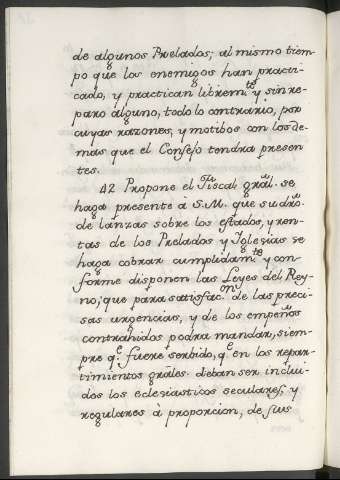 de algunos Prelados; al mismo tiem-
po que los enemigos han practi-
cado, y practican librem.te y sin re-
paro alguno, todo lo contrario, por
cuyas razones, y motibos con los de-
mas que el Consejo tendra presen-
tes.
42 Propone el Fiscal gral. se
haga presente à S.M. que su dro.
de lanzas sobre los estados, y ren-
tas de los Prelados y Iglesias se
haga cobrar cumplidam.te y con-
forme disponen las Leyes del Rey-
no; que para satisfac.on de las preci-
sas urgencias, y de los empeños
contrahidos podra mandar, siem-
pre q.e fuere serbido, q.e en los repar-
timientos grales. deban ser inclui-
dos los eclesiasticos seculares, y
regulares à proporcion, de sus